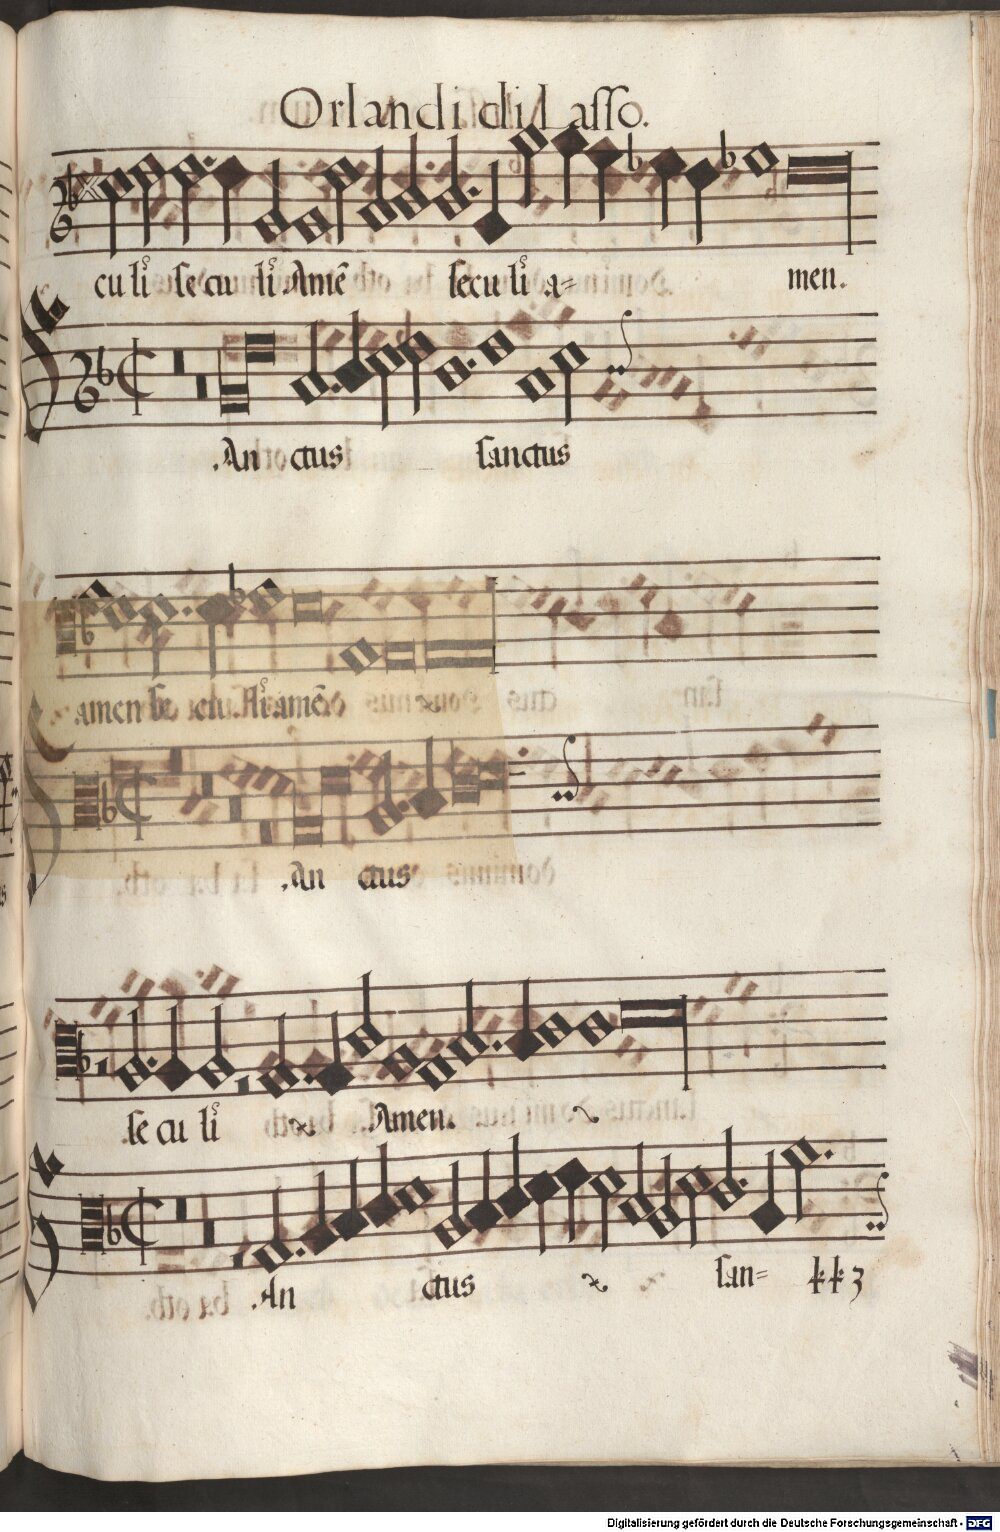 Orlandi di Lasso.
culi secu li Amē seculi a= men.
.An ctus sanctus
amen se culu. li. amē
.An ctus
.se cu li Amen.
.An ctus san= kk3
Digitalisierung gefördert durch die Deutsche Forschungsgemeinschaft - DFG